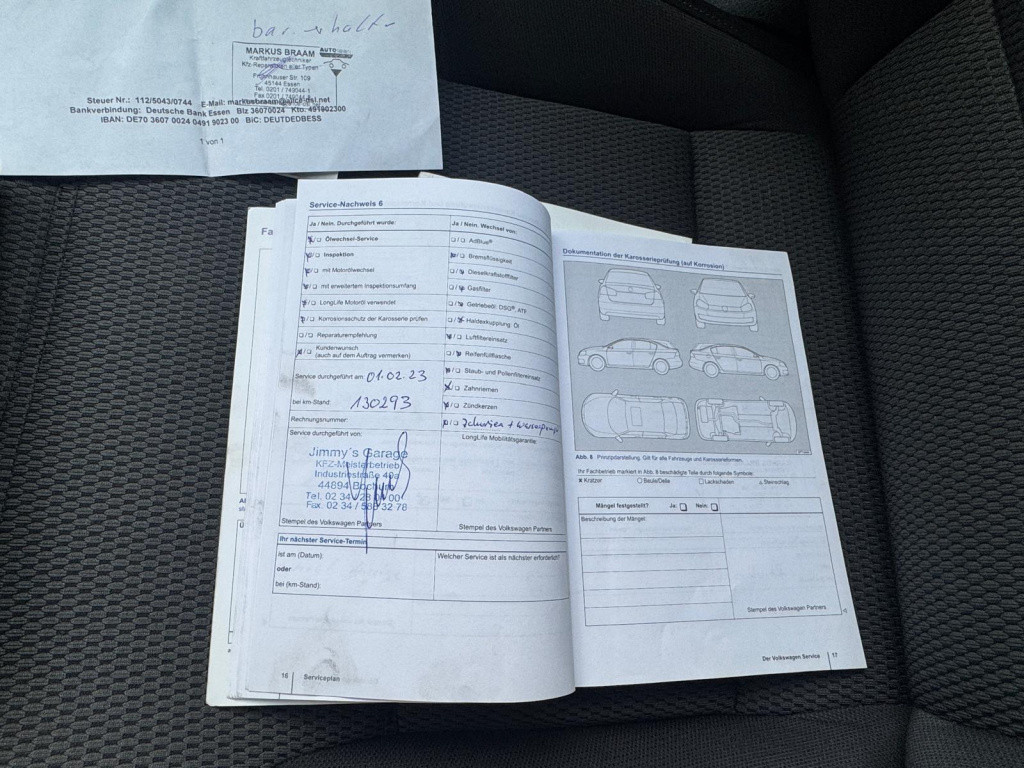 bar
MARKUS BRAAM
AUTO
Kraftfahrzeugtechniker
Kfz-Reparaturen aller Typen
Str. 109
45144 Essen
Tel. 0201 / 749044-1
Fax 0201 /
Steuer Nr.: 112/5043/0744 E-Mail: markusbraam@
Bankverbindung: Deutsche Bank Essen Blz 36070024 Kto. 491902300
IBAN: DE70 3607 0024 0491 9023 00 BIC: DEUTDEDBESS
1 von 1
Fa
Service-Nachweis 6
Ja / Nein. Durchgeführt wurde:
Ölwechsel-Service
Inspektion
mit Motorölwechsel
mit erweitertem Inspektionsumfang
LongLife Motoröl verwendet
Korrosionsschutz der Karosserie prüfen.
Reparaturempfehlung
Kundenwunsch
(auch auf dem Auftrag vermerken)
Service durchgeführt am: 01.02.23
bei km-Stand: 130293
Rechnungsnummer:
Service durchgeführt von:
Jimmy's Garage
KFZ-Meisterbetrieb
Industriestraße 40a
44894 Bochum
Tel. 02 34 / 23 00
Fax. 02 34 / 58 32 78
Stempel des Volkswagen Partners
Ja / Nein. Wechsel von:
AdBlue®
Bremsflüssigkeit
Dieselkraftstofffilter
Gasfilter
Getriebeöl: DSG®, ATF
Haldexkupplung: Öl
Luftfiltereinsatz
Reifenfüllflasche
Staub- und Pollenfiltereinsatz
Zahnriemen
Zündkerzen
LongLife Mobilitätsgarantie:
Stempel des Volkswagen Partners
Ihr nächster Service-Termin
ist am (Datum):
oder
bei (km-Stand):
Welcher Service ist als nächster erforderlich?
16 Serviceplan
Dokumentation der Karosserieprüfung (auf Korrosion)
Abb. 5 Prinzipdarstellung. Gilt für alle Fahrzeuge und Karosserieformen.
Ihr Fachbetrieb markiert in Abb. 5 beschädigte Teile durch folgende Symbole:
Kratzer Beule/Delle Lackschaden Steinschlag
Mängel festgestellt? Ja: Nein:
Beschreibung der Mängel:
Stempel des Volkswagen Partners
Der Volkswagen Service 17